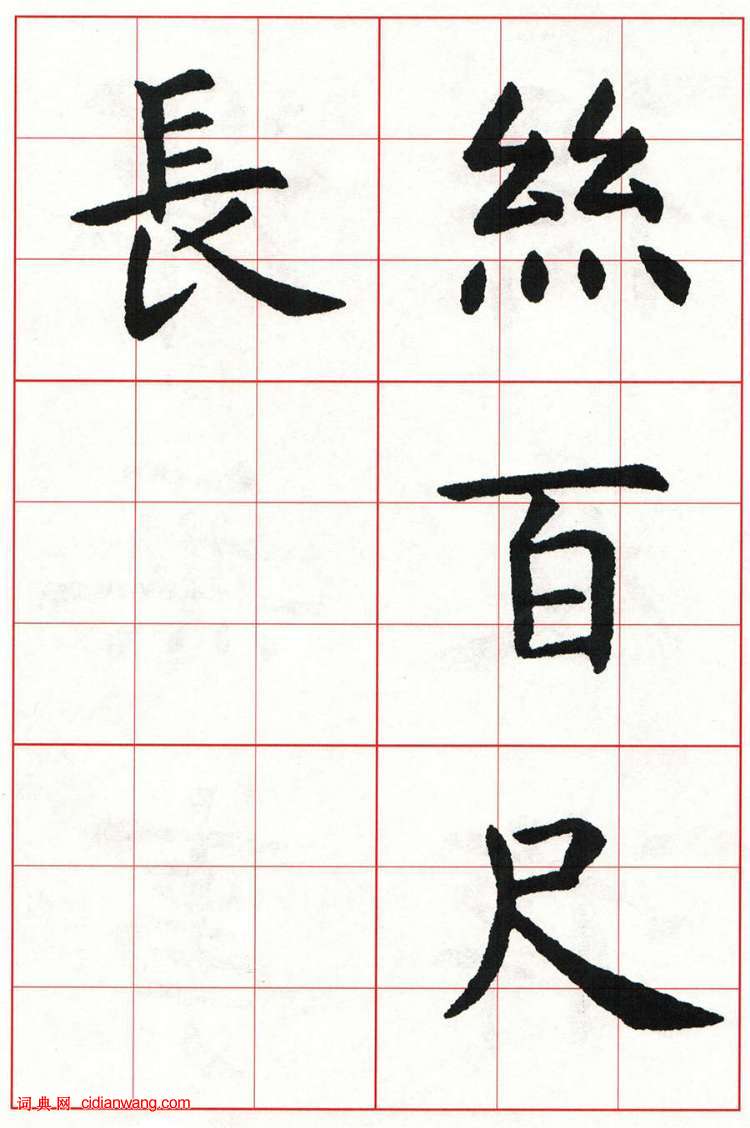 絲百尺
長
词典网 cidianwang.com